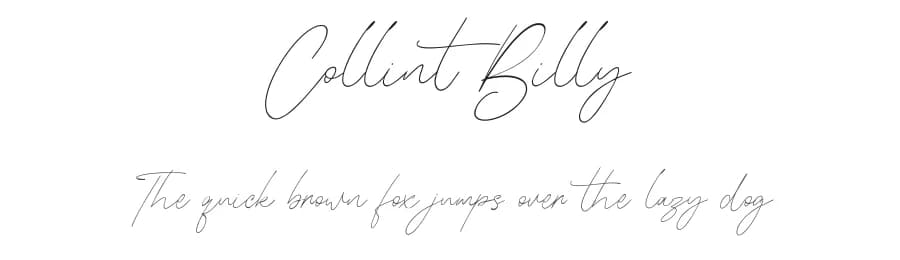 Collint Billy
The quick brown fox jumps over the lazy dog